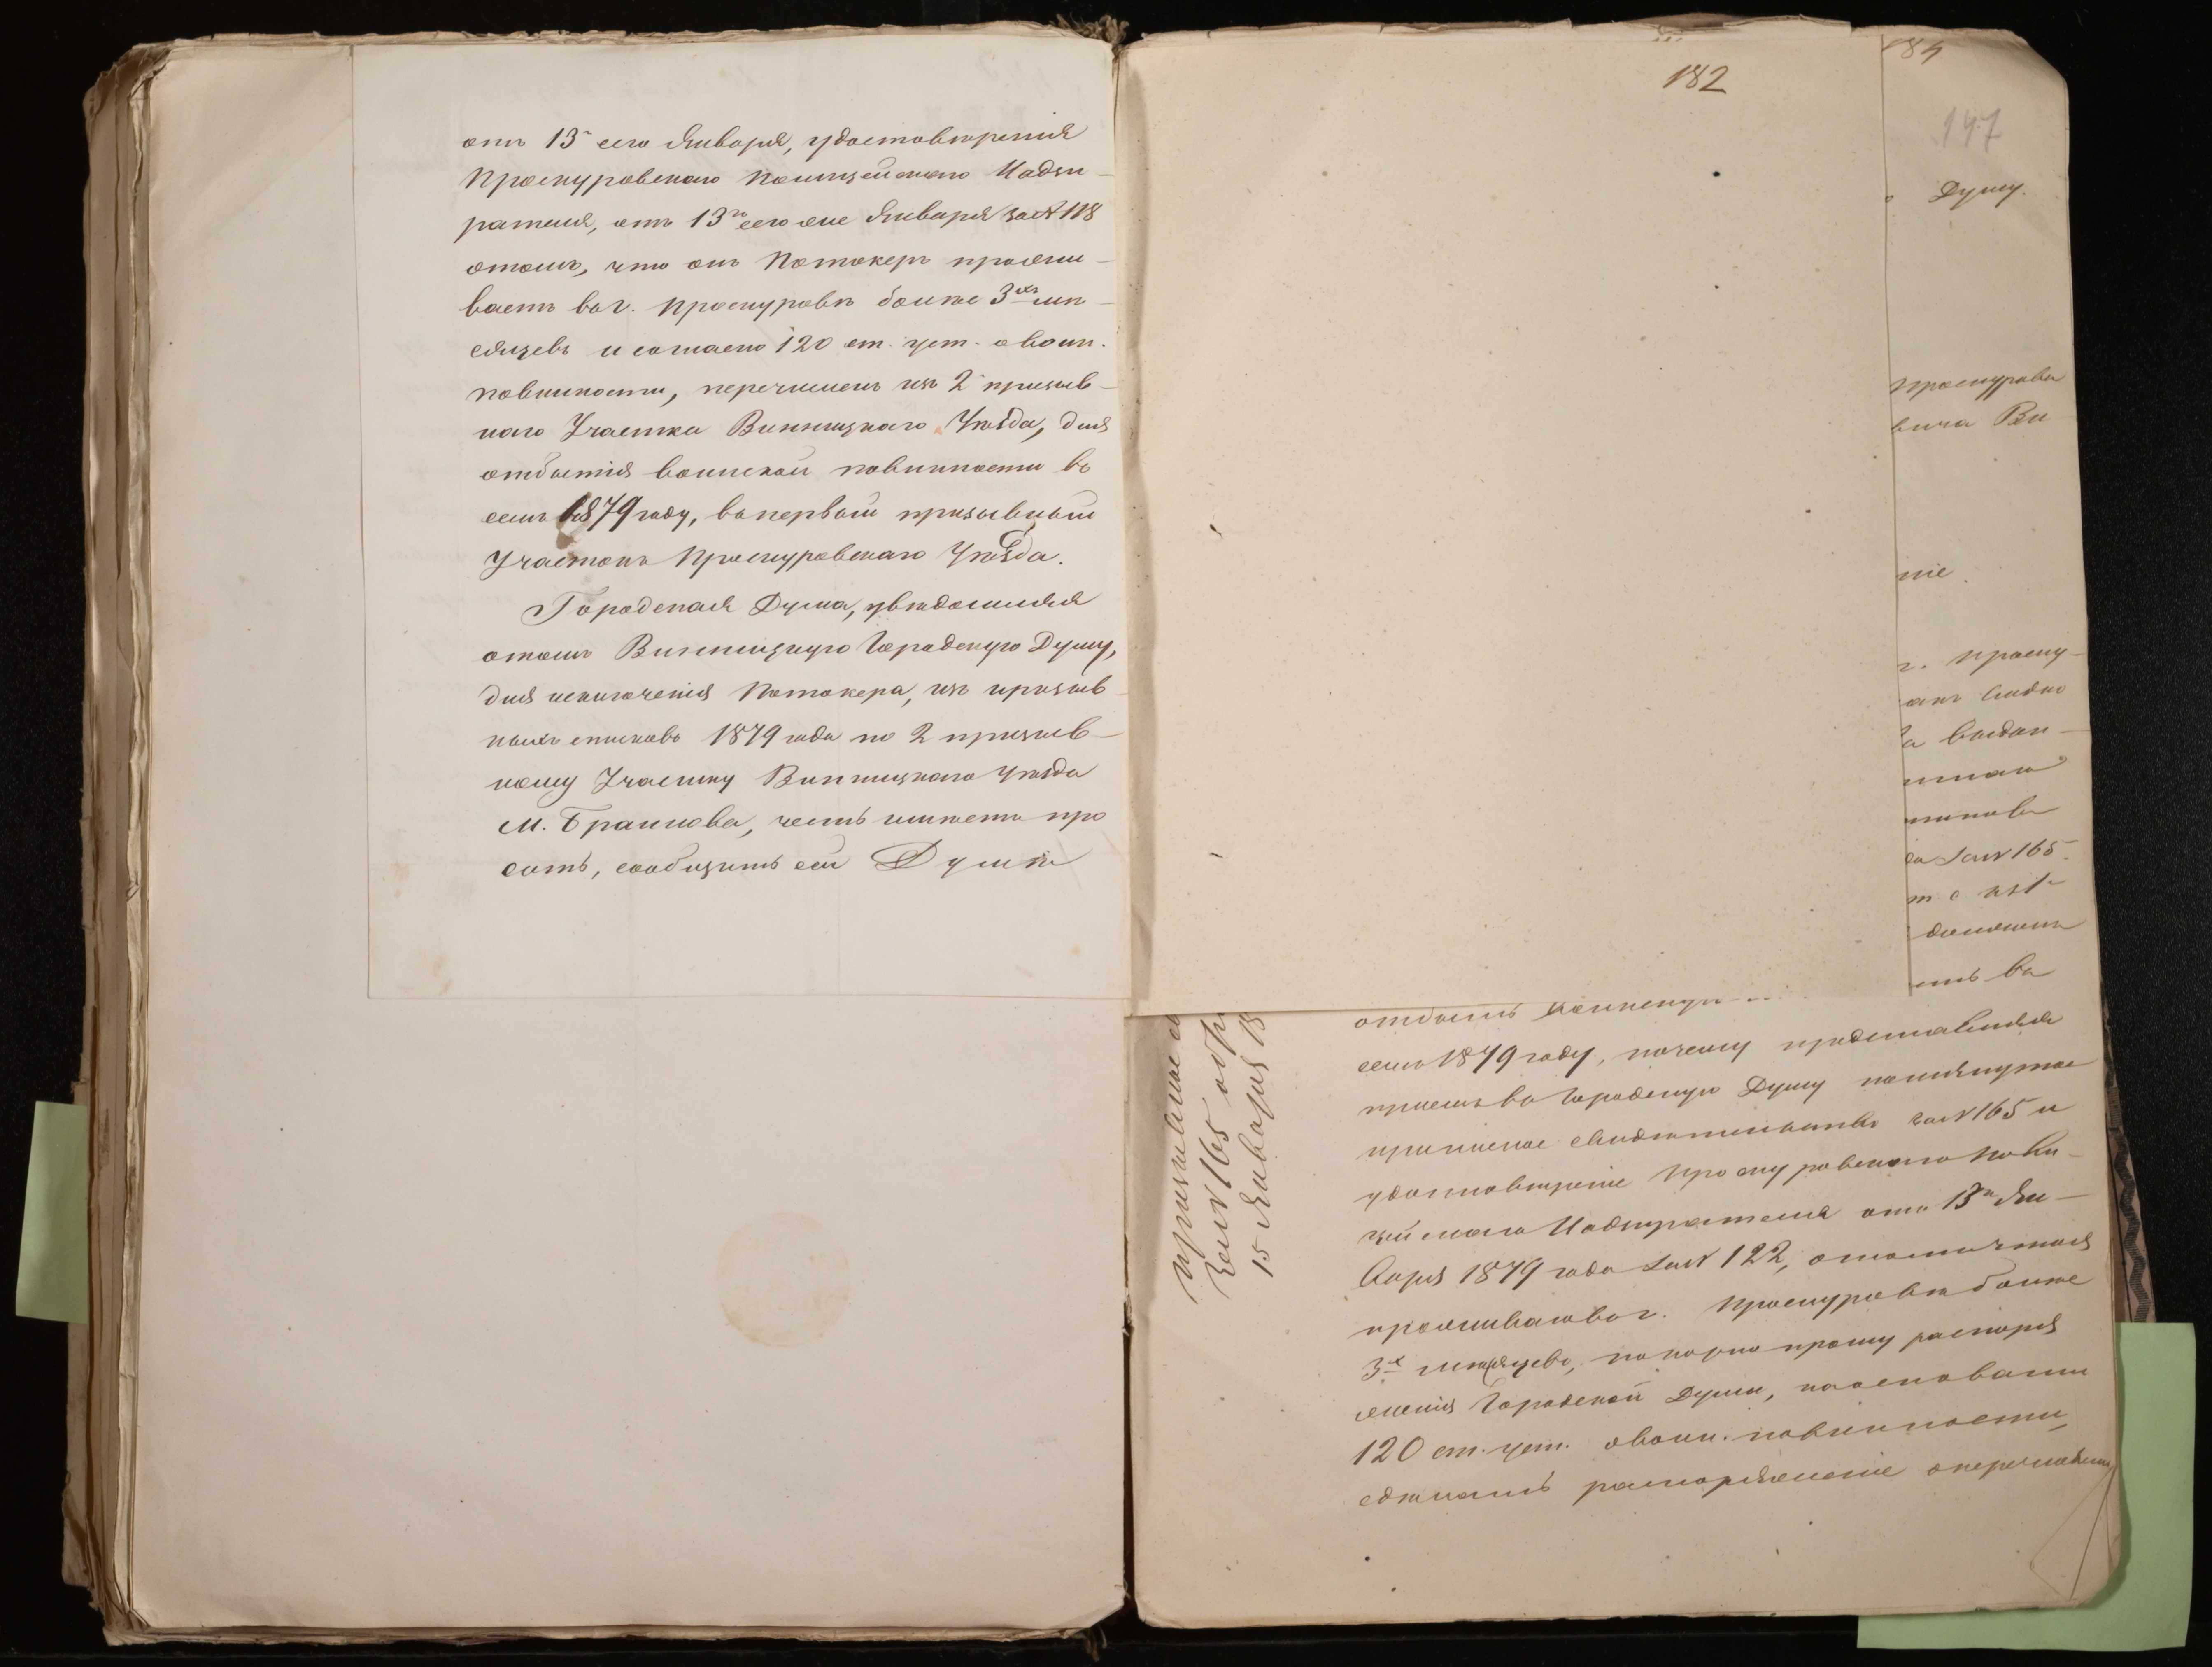 отъ 13 сего Января, удостовѣренія
Проскуровскаго Полицейскаго Надзи-
рателя, отъ 13го сего же Января за № 118
отомъ, что онъ Потокеръ прожи-
ваетъ въ г. Проскуровѣ болѣе 3хъ мѣ-
сяцевъ и согласно 120 ст. уст. о воин.
повинности, перечисленъ изъ 2 призыв-
наго Участка Винницкаго Уѣзда, для
отбытія воинской повинности въ
семъ 1879 году, въ первый призывной
Участокъ Проскуровскаго Уѣзда.
Городская Дума, увѣдомляя
отомъ Винницкую Городскую Думу,
для исключенія Потокера, изъ призыв-
ныхъ списковъ 1879 года по 2 призыв-
ному Участку Винницкаго Уѣзда
М. Браилова, честь имѣетъ про
сить, сообщить сей Думѣ
182
184
147
Думу.
Проскурова
вича Ви
ніе
г. Проску-
видно
выдан-
за № 165.
ить въ
отбыть воинскую
семъ 1879 году, почему представляя
присемъ въ Городскую Думу помянутое
приписное свидѣтельство за № 165 и
удостовѣреніе Проскуровскаго Поли-
цейскаго Надзирателя отъ 13го Ян-
варя 1879 года за № 122, отомъ что я
проживаю въ г. Проскуровѣ болѣе
3х мѣсяцевъ, покорно прошу распоря
женія Городской Думы, на основаніи
120 ст. уст. о воин. повинности,
сдѣлать распоряженіе о перечисленіи
приписное
за № 165 обр
15 Января 18